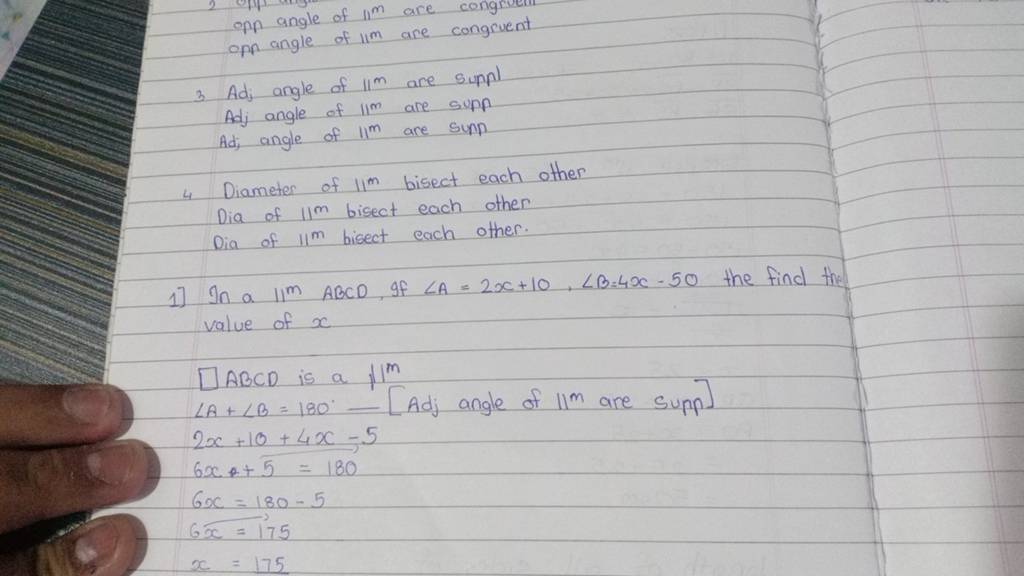 2 opp angle
opp angle of 11m are congruent
opp angle of 11m are congruent
3 Adj angle of 11m are suppl
Adj angle of 11m are supp
Adj angle of 11m are supp
4 Diameter of 11m bisect each other
Dia of 11m bisect each other
Dia of 11m bisect each other.
1] In a 11m ABCD, If ∠A = 2x+10, ∠B=4x-50 the find the
value of x
□ABCD is a 11m
∠A + ∠B = 180° — [Adj angle of 11m are supp]
2x +10 + 4x - 5
6x + 5 = 180
6x = 180 - 5
6x = 175
x = 175